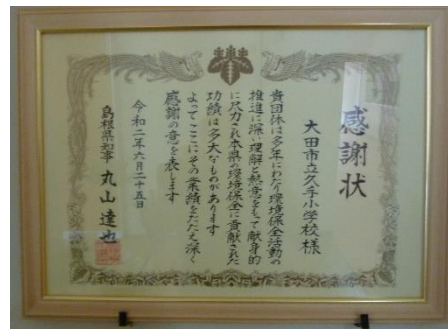 感謝状
大田市立久手小学校様
貴団体は多年にわたり環境保全活動の
推進に深い理解と熱意をもって献身的
に尽力され本県の環境保全に貢献された
功績は多大なものがあります
よってここにその業績をたたえ深く
感謝の意を表します
令和二年六月二十五日
島根県知事 丸山達也